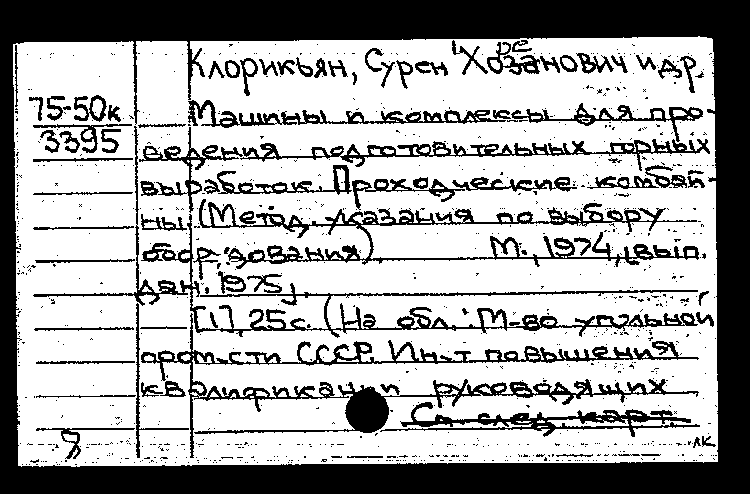 Клорикьян, Сурен Хозанович и др.
75-50к
3395
Машины и комплексы для про-
ведения подготовительных горных
выработок. Проходческие комбай-
ны. (Метод. указания по выбору
оборудования). М., 1974, [вып.
дан. 1975].
[1], 25 с. (На обл.: М-во угольной
пром-сти СССР. Ин-т повышения
квалификации руководящих
См. след. карт.